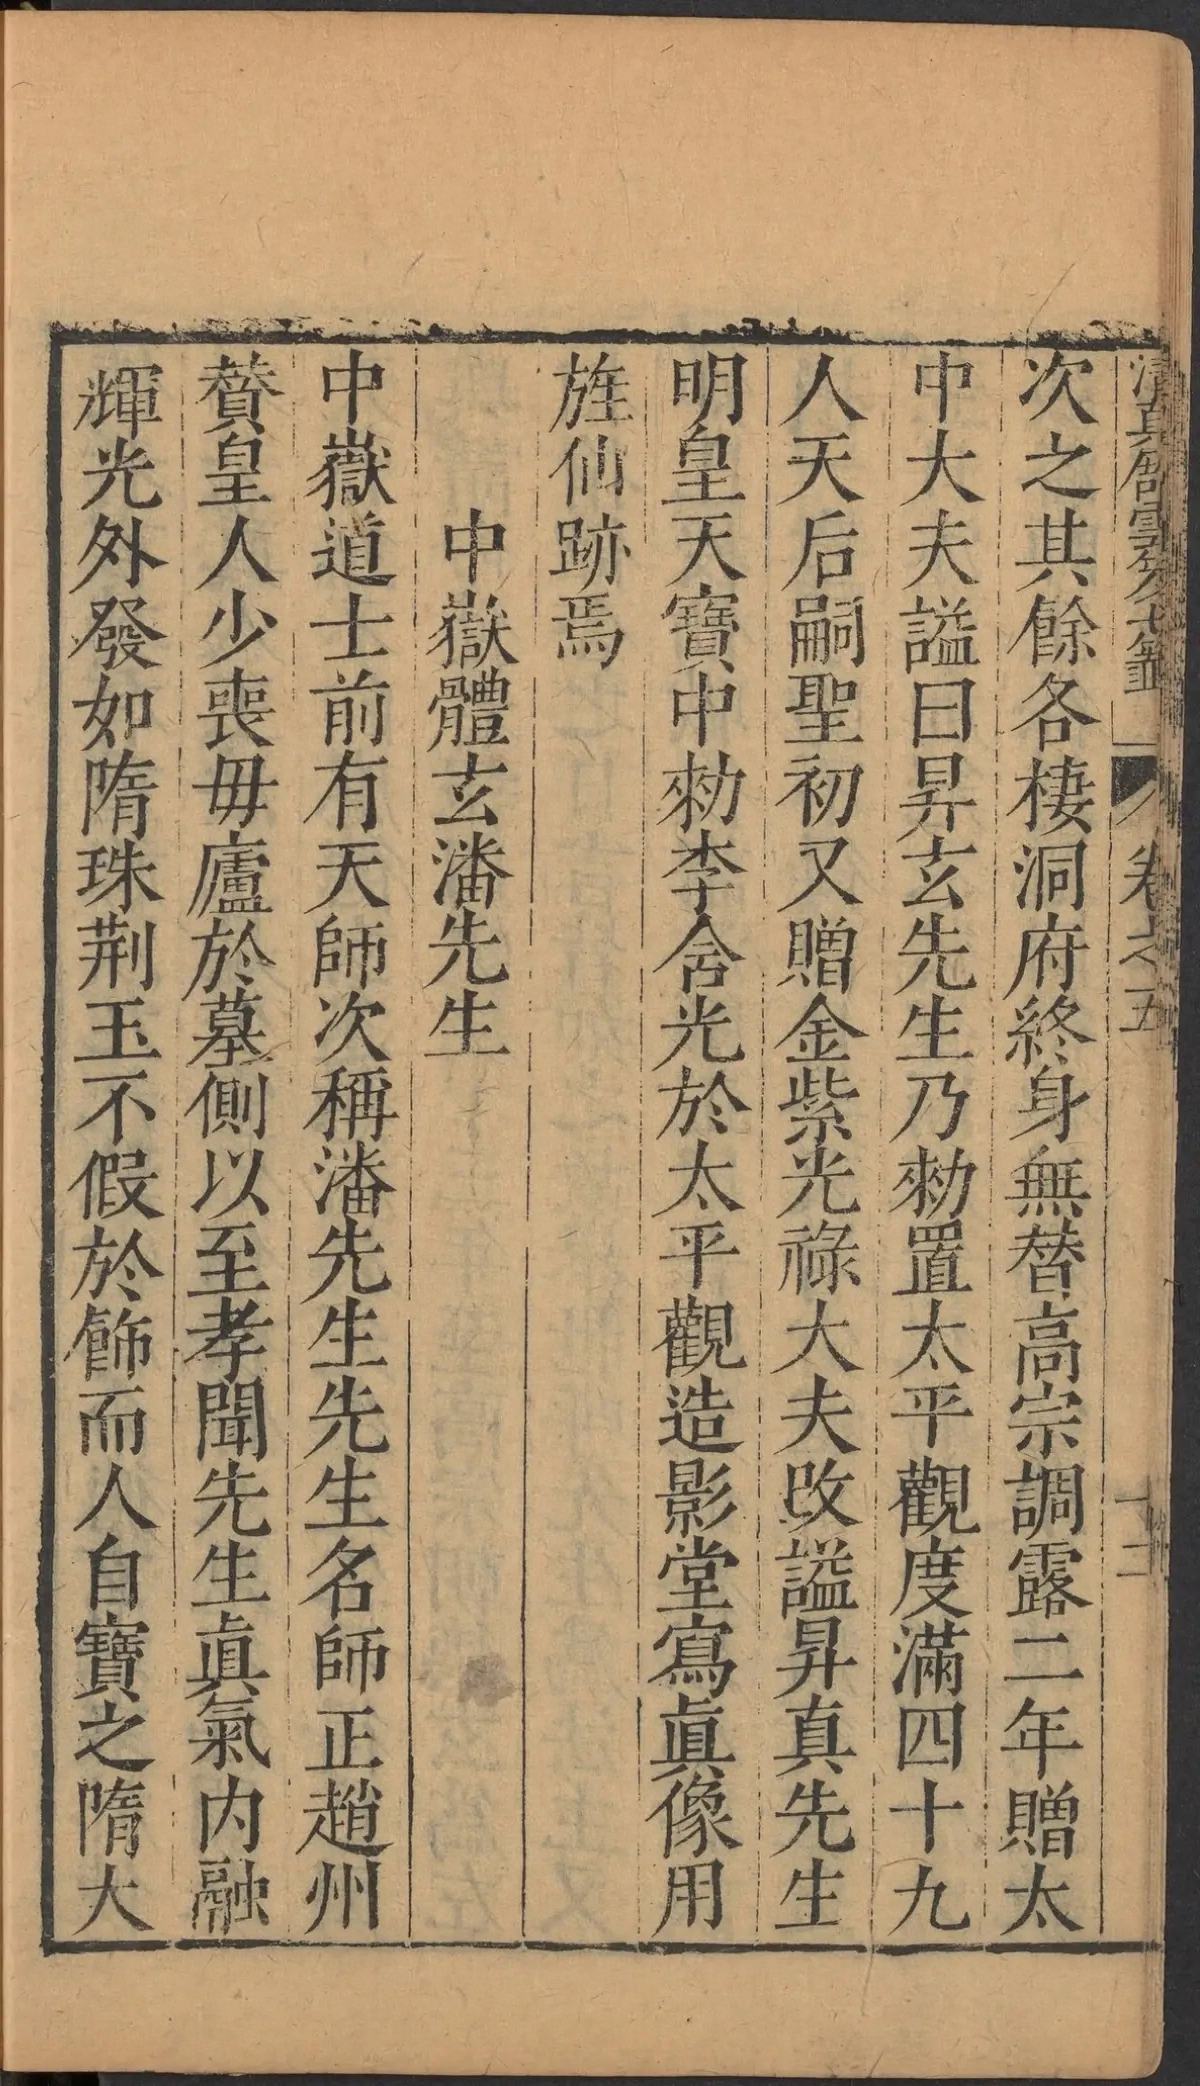 清真館雲笈七籤 卷之五 十二
次之其餘各棲洞府終身無替高宗調露二年贈太
中大夫謚曰昇玄先生乃勑置太平觀度滿四十九
人天后嗣聖初又贈金紫光祿大夫改謚昇真先生
明皇天寶中勑李含光於太平觀造影堂寫眞像用
旌仙跡焉
中嶽體玄潘先生
中嶽道士前有天師次稱潘先生先生名師正趙州
贊皇人少喪母廬於墓側以至孝聞先生眞氣內融
輝光外發如隋珠荆玉不假於飾而人自寶之隋大